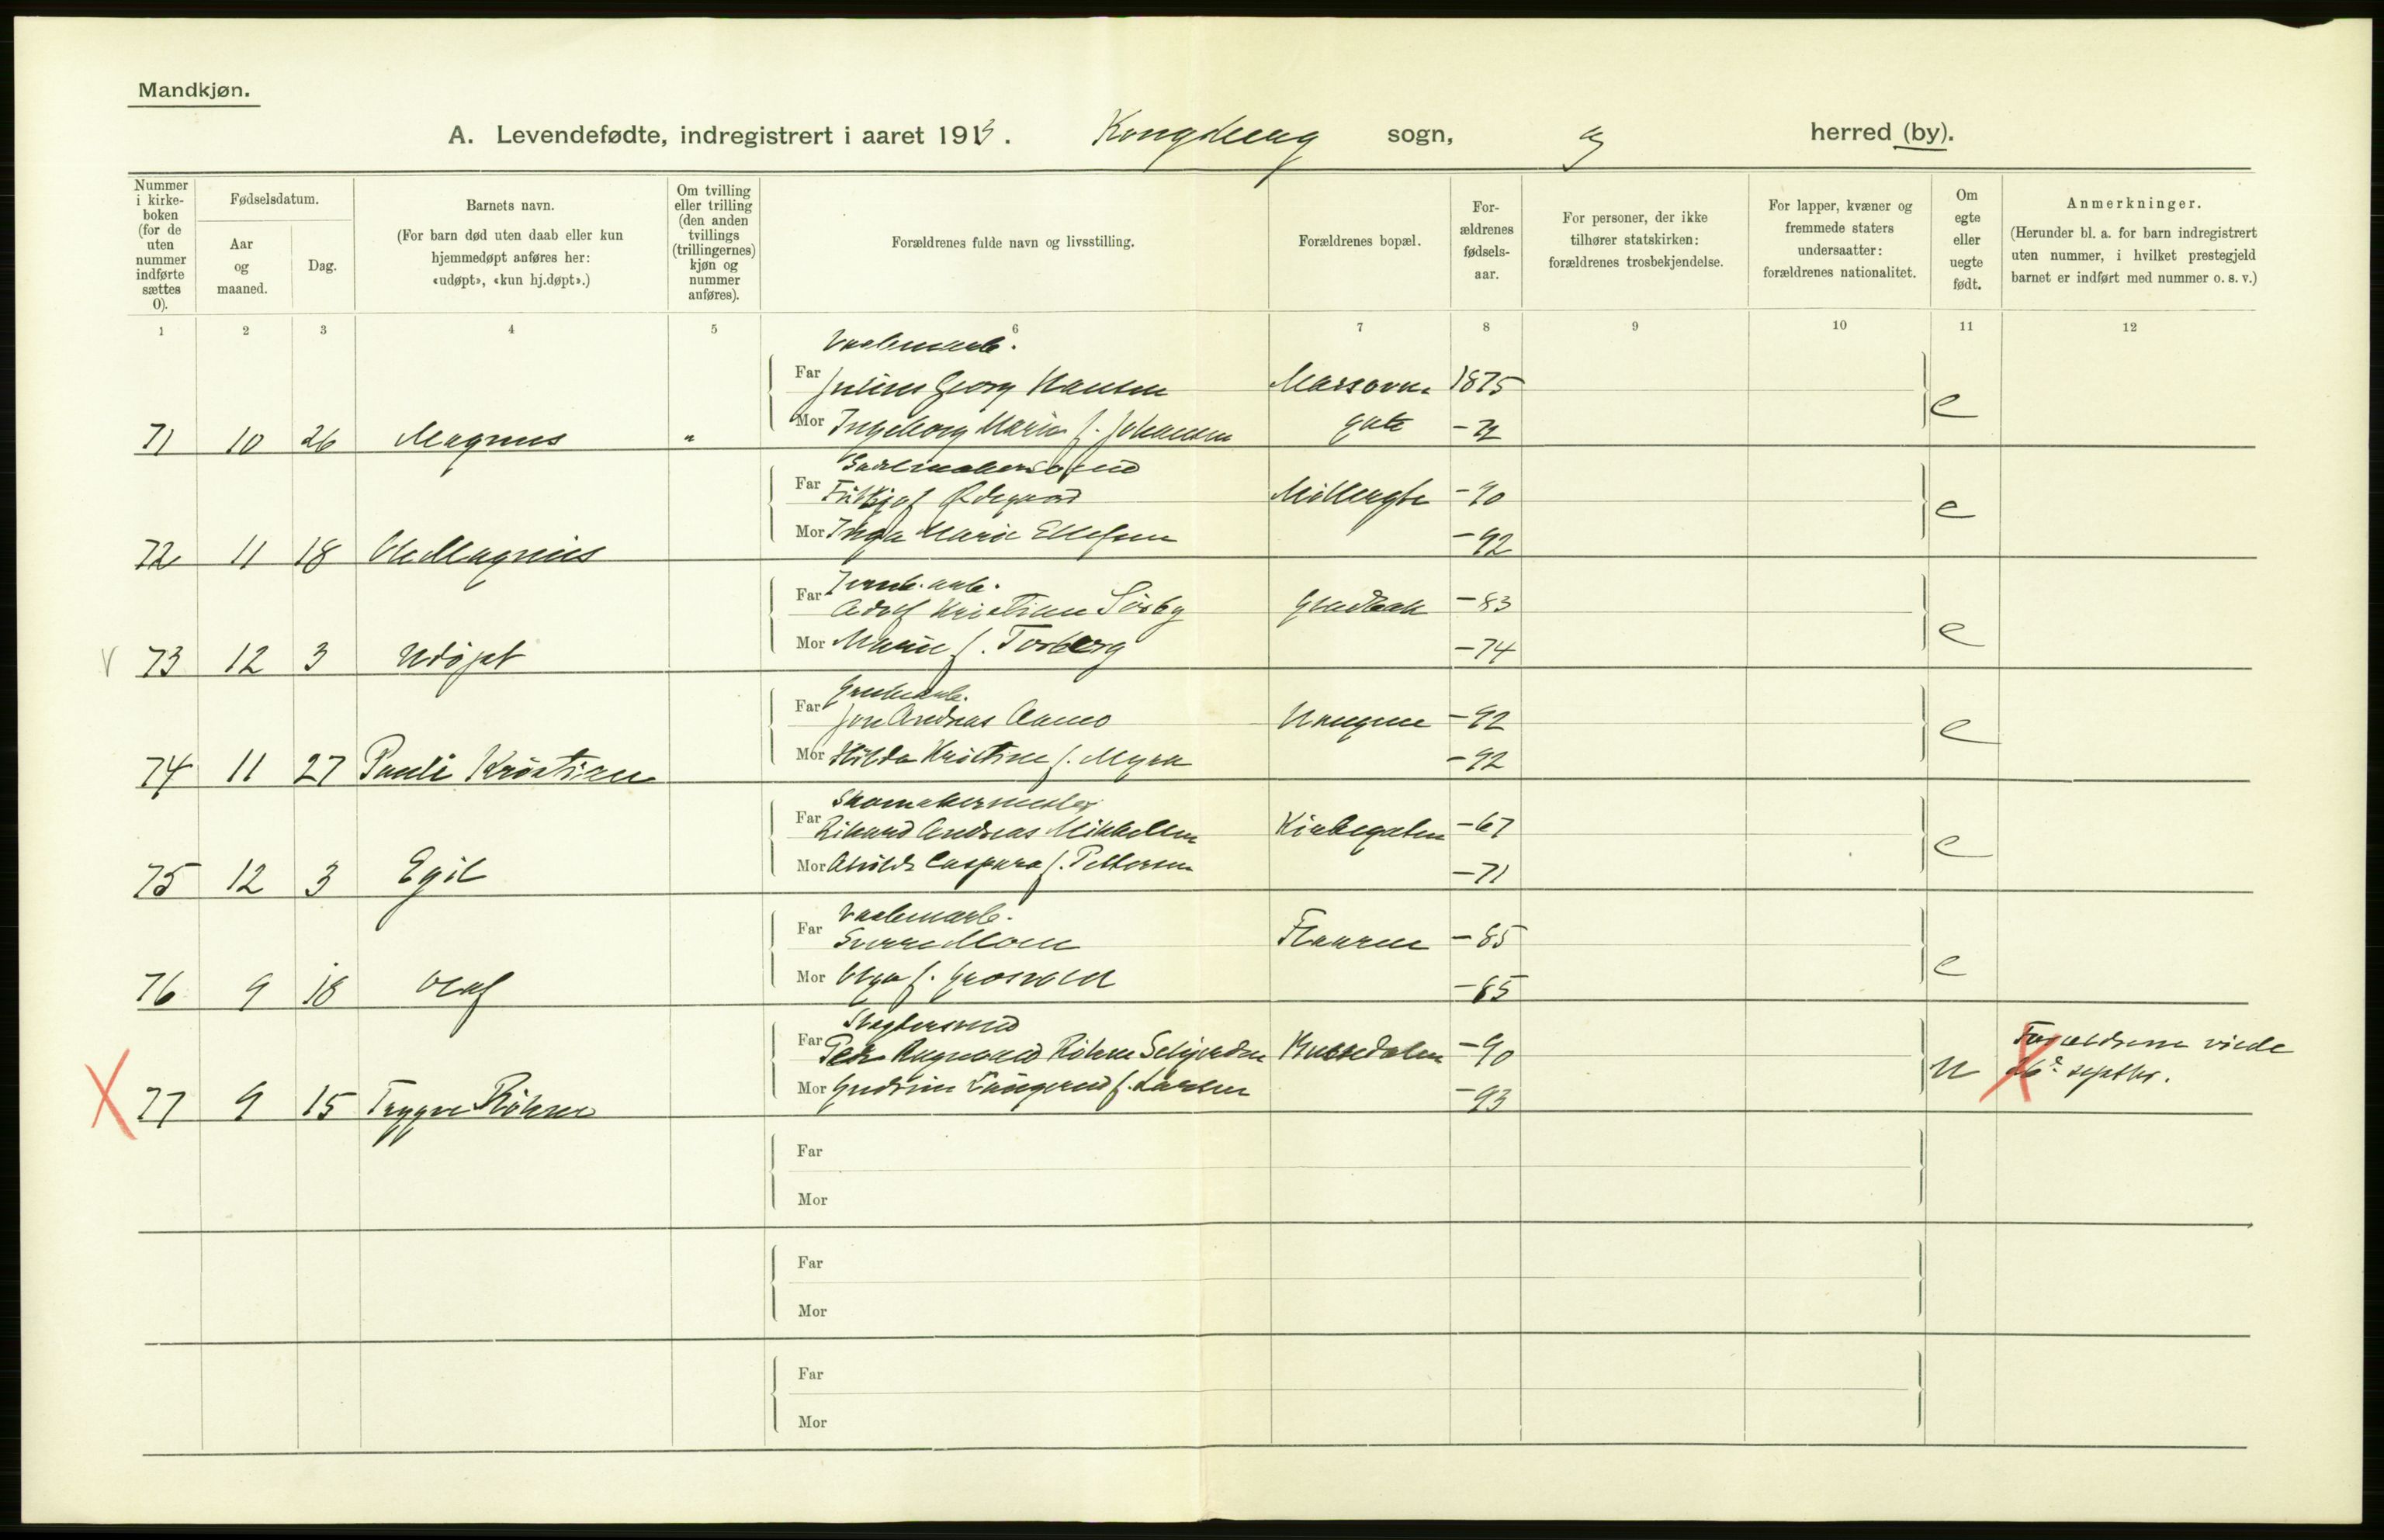 Mandkjøn.
A. Levendefødte, indregistrert i aaret 1913. Kongsberg sogn, herred (by).
Nummer i kirke-boken (for de uten nummer indførte sættes 0).
Fødselsdatum.
Aar og maaned.
Dag.
Barnets navn.
(For barn død uten daab eller kun
hjemmedøpt anføres her:
«udøpt», «kun hj.døpt».)
Om tvilling
eller trilling
(den anden
tvillings
(trillingernes)
kjøn og
nummer
anføres).
Forældrenes fulde navn og livsstilling.
Forældrenes bopæl.
For-
ældrenes
fødsels-
aar.
For personer, der ikke
tilhører statskirken:
forældrenes trosbekjendelse.
For lapper, kvæner og
fremmede staters
undersaatter:
forældrenes nationalitet.
Om
egte
eller
uegte
født.
Anmerkninger.
(Herunder bl. a. for barn indregistrert
uten nummer, i hvilket prestegjeld
barnet er indført med nummer o. s. v.)
1 2 3 4 5 6 7 8 9 10 11 12
Far Julius Georg Hansen 1875
Mor Ingeborg Marie f. Johansen gate e
71 10 26 Magnus "
Far Ødegaard Møllergt -90
Mor Inga Marie Ellefsen -92 e
72 11 18 Ole Magnus
Far Adolf Kristian Sørby -83
Mor Marie f. Torberg -74 e
V 73 12 3 Udøpt
Grubearb.
Far Jon Andreas Aamo -92
Mor Hilda Kristine f. Myra -92 e
74 11 27 Pauli Kristian
Skomakermester
Far Rikard Andreas Mikkelsen Kirkegaten -67
Mor Caspara f. Pettersen -71 e
75 12 3 Egil
Far Sverre Moen -85
Mor Olga f. -85 e
76 9 18 Olaf
Slagtersvend
Far Peder Ragnvald Røhne -90 Forældrene viede
Mor Gudrun f. Larsen -93 u 26d septbr.
X 77 9 15 Trygve Røhne X
Far
Mor
Far
Mor
Far
Mor